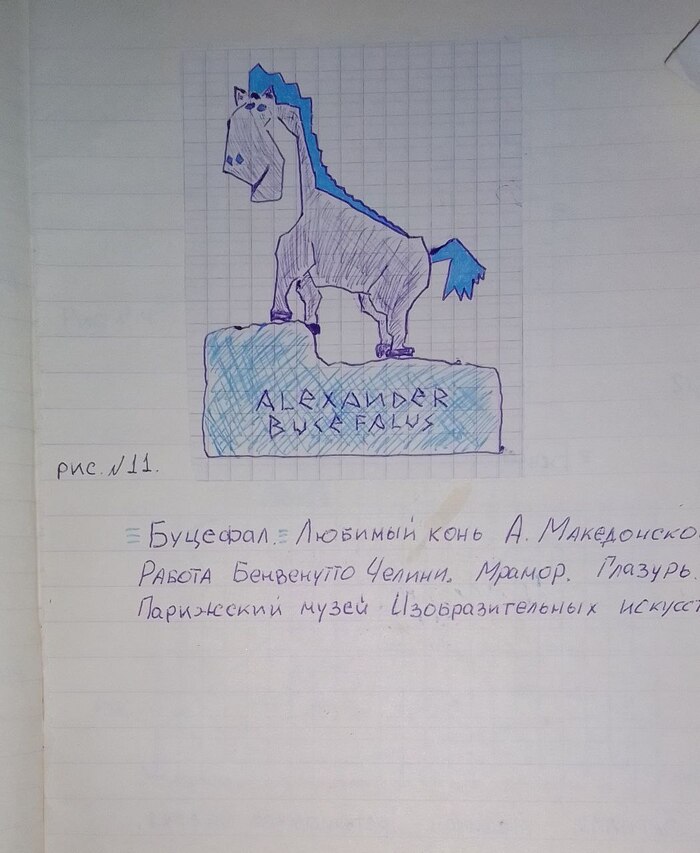 ALEXANDER
BUCEFALUS
рис. №11.
Буцефал. Любимый конь А. Македонско
Работа Бенвенутто Челини. Мрамор. Глазурь.
Парижсский музей Изобразительных искусст